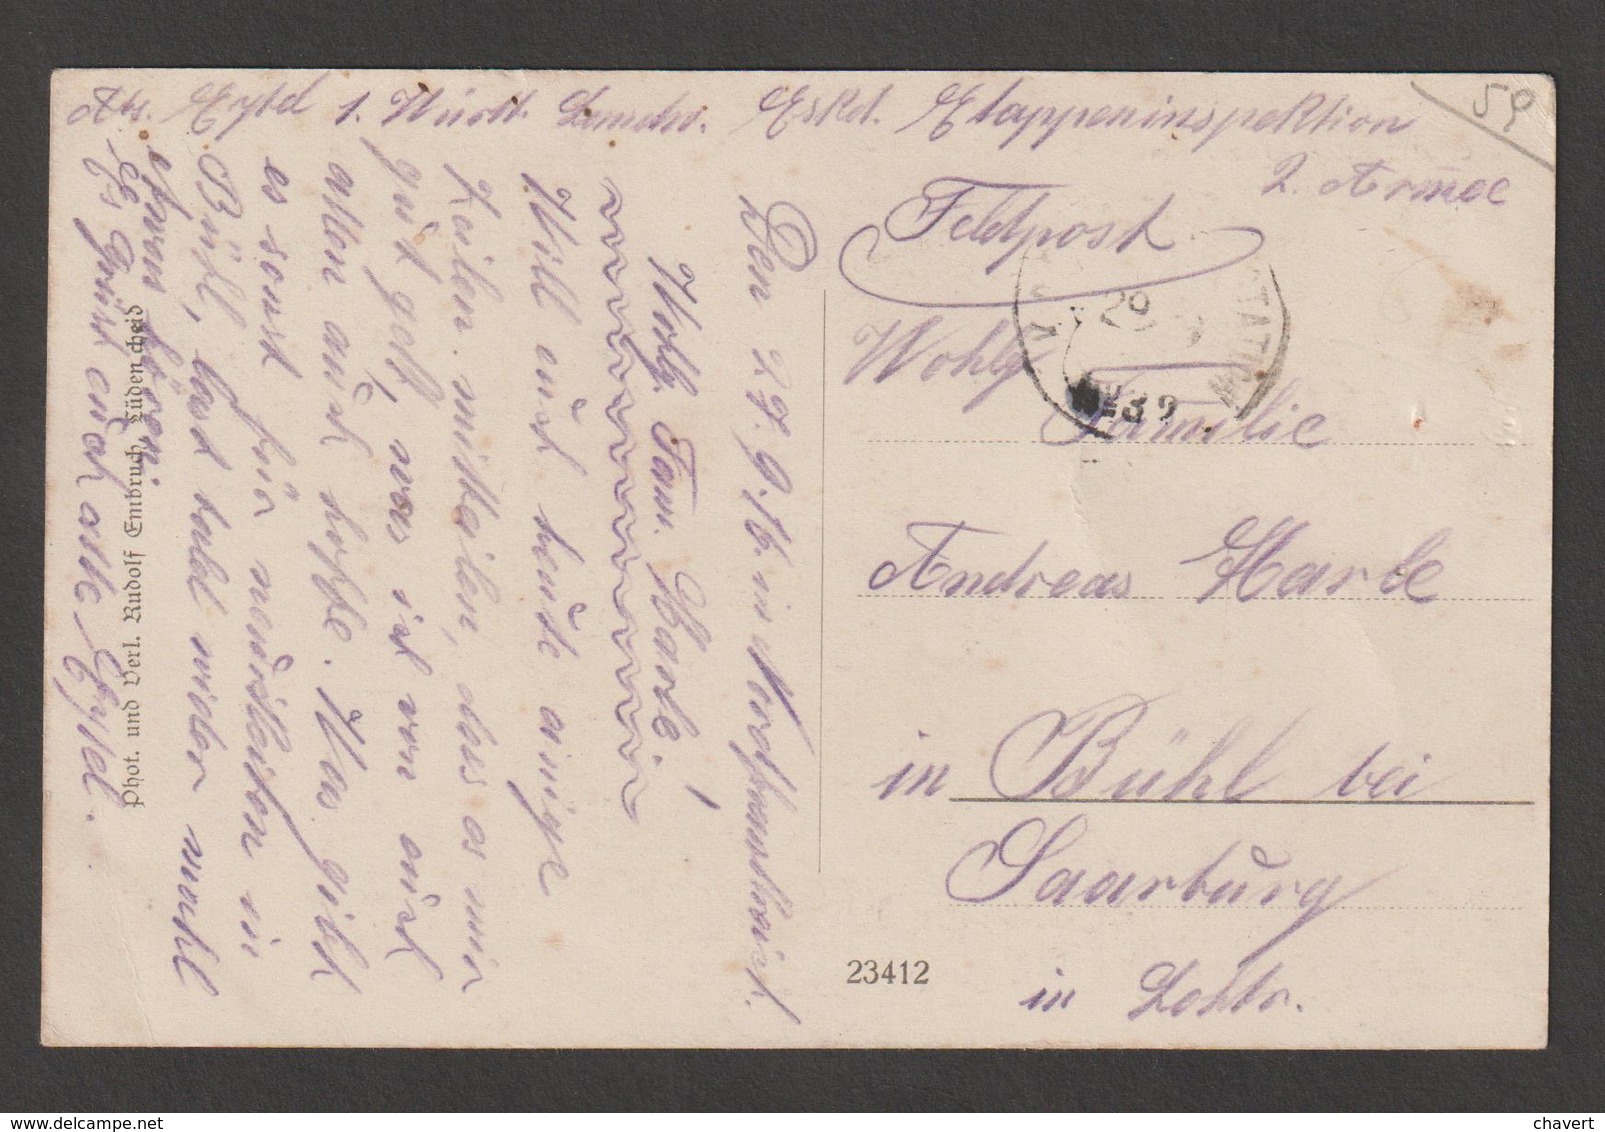 Abs. Eytel 1. Württ. Landw. Eskd. Etappeninspektion
2. Armee
59
Feldpost
STATION
29
No 32
Wohlg
Familie
Andreas Harle
in Bühl bei
Saarburg
in Lothr.
23412
Den 27.9.16. in
Wohlg. Fam. Harle!
Will euch heute einige
Zeilen mitteilen, das es mir
gut geht, was ich von euch
allen auch hoffe. Was gibt
es sonst für neuigkeiten in
Bühl, lasst bald wieder mahl
etwas hören
Es grüsst euch alle Eytel.
Phot. und Verl. Rudolf Embruch, Lüdenscheid
chavert